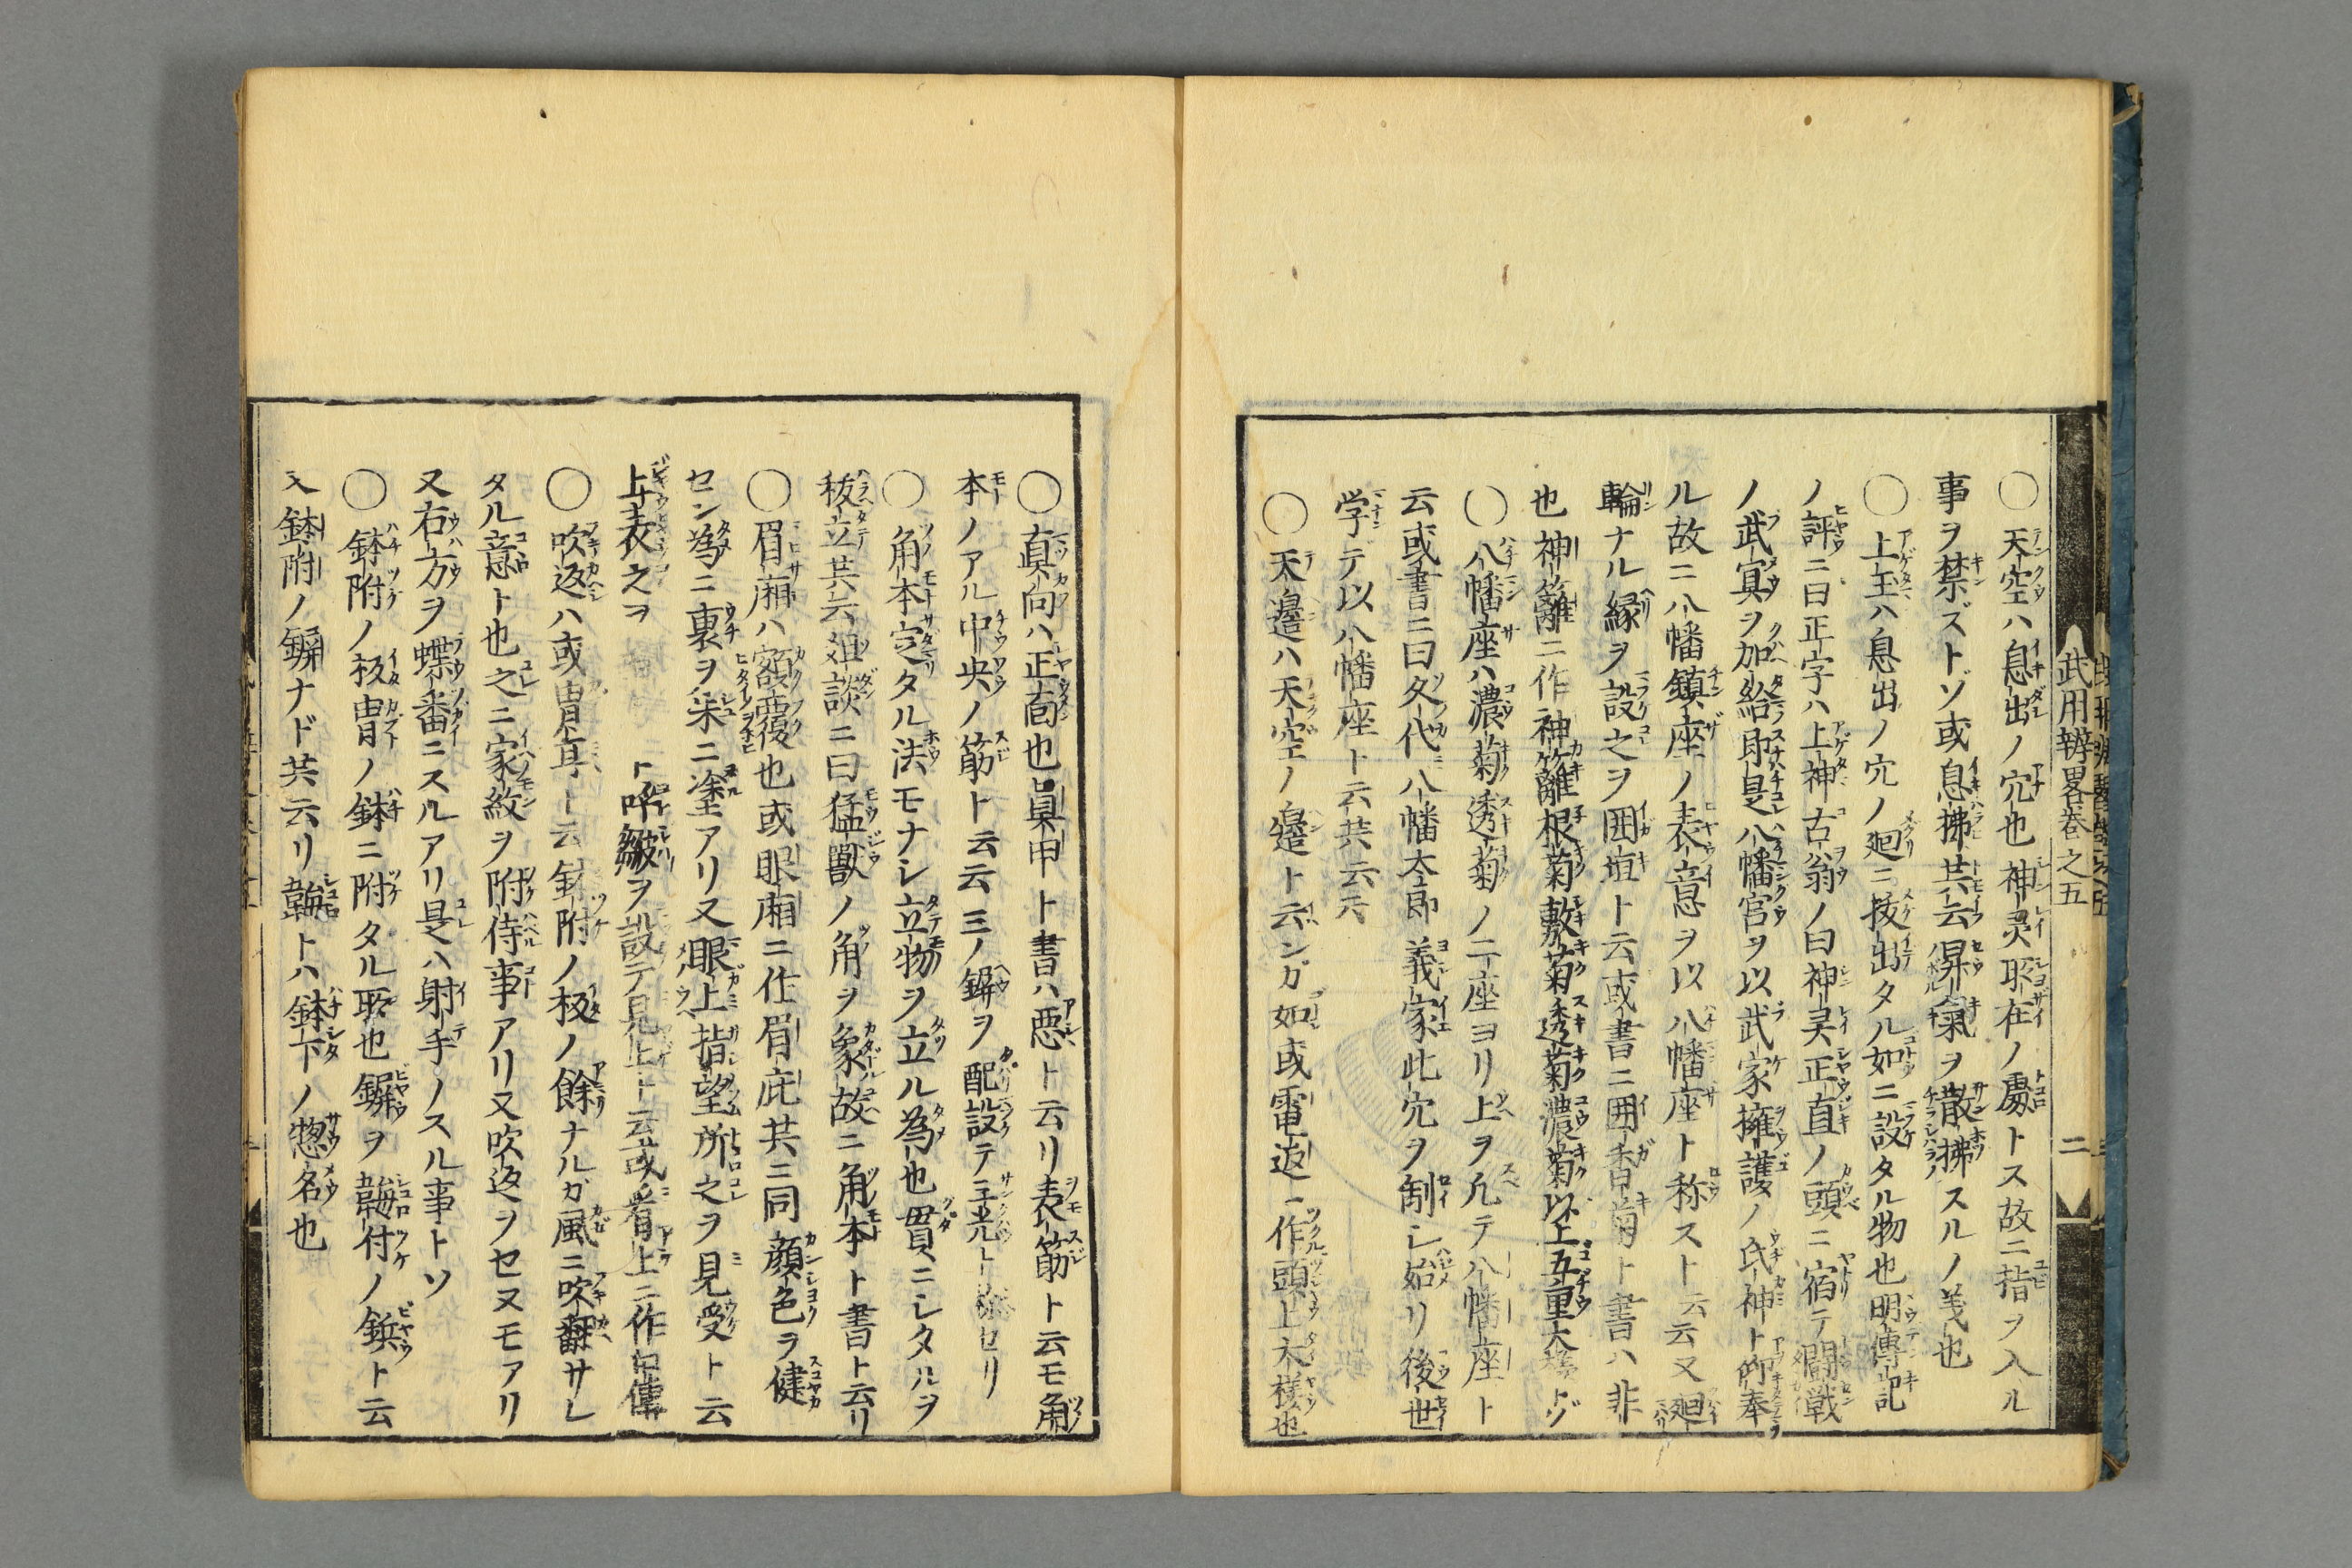 武用辨畧巻之五
二
〇天空ハ息出ノ穴也神灵所在ノ處トス故ニ指ヲ入ル
事ヲ禁ズトゾ或息拂共云昇氣ヲ散拂スルノ義也
〇上玉ハ息出ノ穴ノ廻ニ抜出タル如ニ設タル物也明傳記
ノ評ニ曰正字ハ上神古翁ノ曰神灵正直ノ頭ニ宿テ闘戰
ノ武冥ヲ加給則是八幡宮ヲ以武家擁護ノ氏神ト仰奉
ル故ニ八幡鎮座ノ表意ヲ以八幡座ト称スト云云又廻
輪ナル縁ヲ設之ヲ囲垣ト云或書ニ囲香菊ト書ハ非
也神籬ニ作神籬根菊敷菊透菊濃菊以上五重大
〇八幡座ハ濃菊透菊ノ二座ヨリ上ヲ凡テ八幡座ト
云或書ニ曰久代八幡太郎義家此穴ヲ制シ始リ後世
学デ以八幡座ト云共云云
〇天邉ハ天空ノ邉ト云ンガ如或電返ニ作頭上大様也
〇真向ハ正面也眞甲ト書ハ悪ト云リ表筋ト云モ角
本ノアル中央ノ筋ト云云三ノ鋲ヲ配設テ三光トセリ
〇角本定タル法モナシ立物ヲ立ル為也貫ニシタルヲ
祓立共云俎談ニ曰猛獣ノ角ヲ象故ニ角本ト書ト云リ
〇眉廂ハ額覆也或眼廂ニ作眉庇共ニ同顔色ヲ健
セン為ニ裏ヲ朱ニ塗アリ又眼上指望所之ヲ見受ト云
上表之ヲ
ト皺ヲ設テ見上ト云或眉上ニ作
〇吹返ハ或冑耳ト云鉢附ノ板ノ餘ナルガ風ニ吹翻サレ
タル意ト也之ニ家紋ヲ附侍事アリ又吹返ヲセヌモアリ
又右方ヲ蝶番ニスルアリ是ハ射手ノスル事トソ
〇鉢附ノ板冑ノ鉢ニ附タル所也鋲ヲ𩊱付ノ鋲ト云
又鉢附ノ鋲ナド共云リ𩊱トハ鉢下ノ惣名也